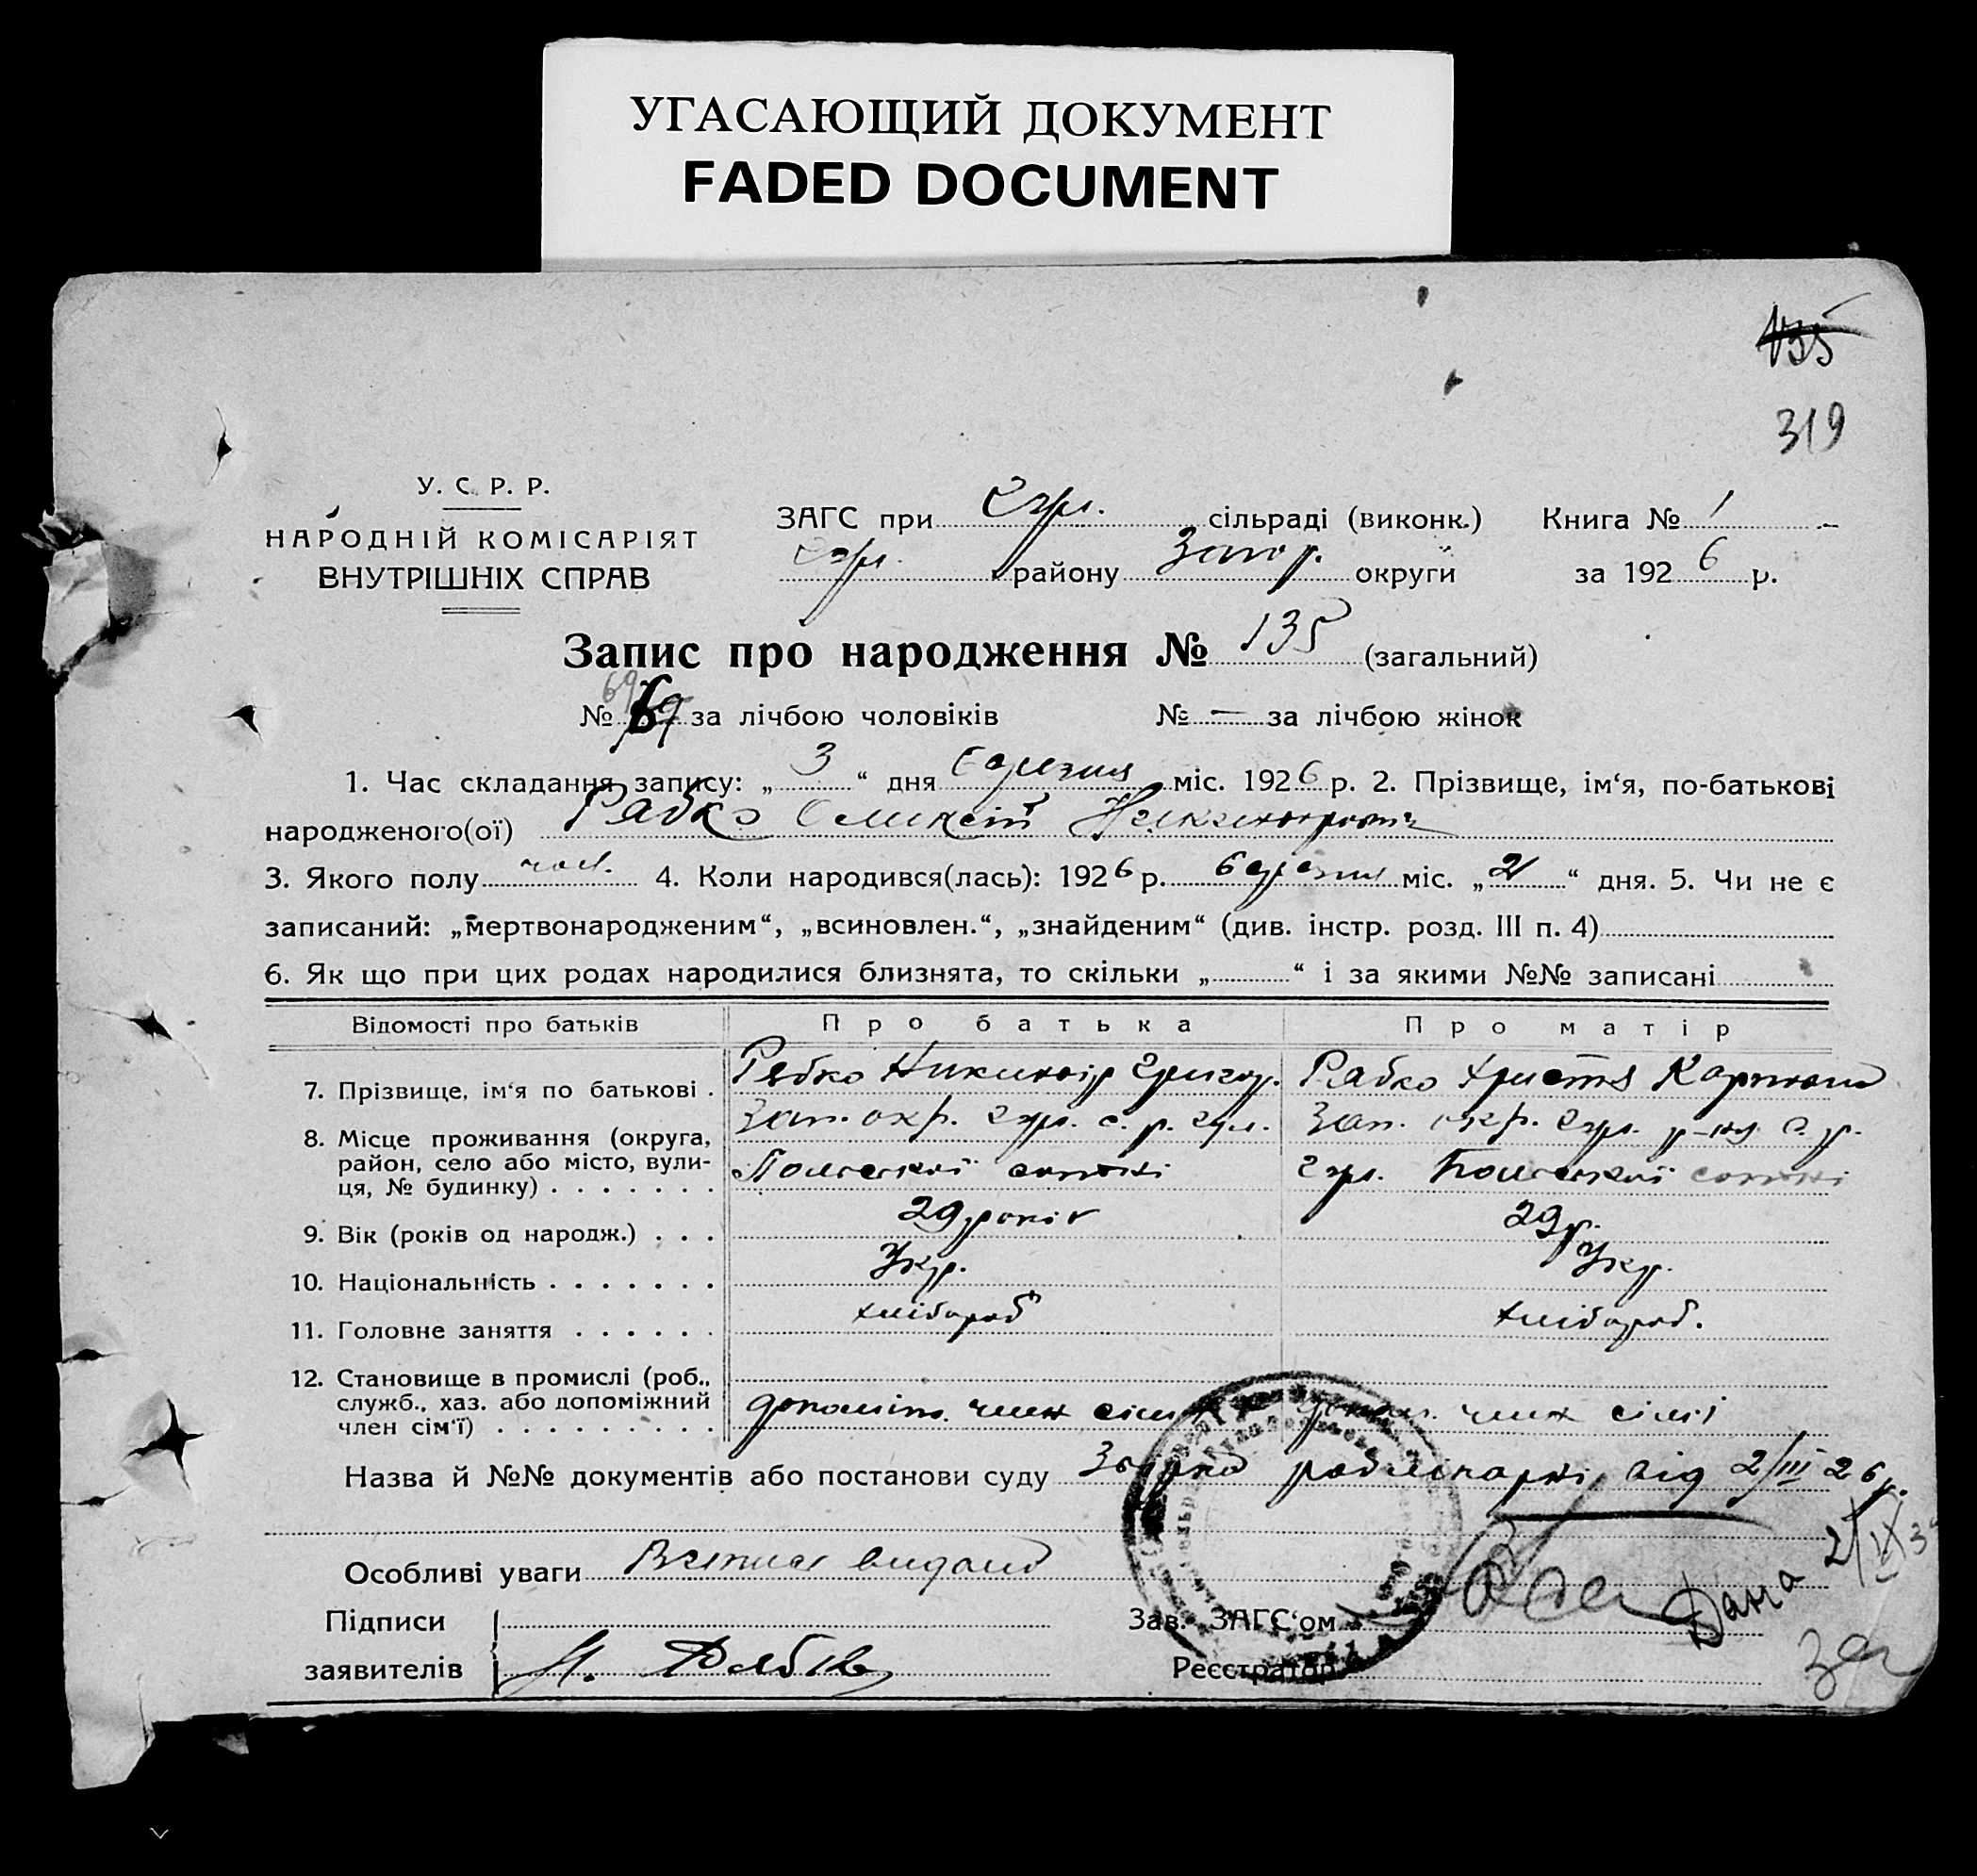 УГАСАЮЩИЙ ДОКУМЕНТ
FADED DOCUMENT
135
319
У. С. Р. Р.
НАРОДНІЙ КОМІСАРІЯТ
ВНУТРІШНІХ СПРАВ
ЗАГС при сільраді (виконк.) Книга № 1
району Запор. округи за 1926 р.
Запис про народження № 135 (загальний)
№ 69 за лічбою чоловіків № — за лічбою жінок
1. Час складання запису: „ 3 “ дня березня міс. 1926 р. 2. Прізвище, ім‘я, по-батькові
народженого(ої) Рябко Олексій
3. Якого полу чол. 4. Коли народився(лась): 1926 р. березня міс. „ “ дня. 5. Чи не є
записаний: „мертвонародженим“, „всиновлен.“, „знайденим“ (див. інстр. розд. III п. 4)
6. Як що при цих родах народилися близнята, то скільки „ “ і за якими №№ записані
Відомості про батьків Про батька Про матір
7. Прізвище, ім‘я по батькові . Рябко Никинор Григор. Рябко Христя
8. Місце проживання (округа, Зап. окр. с. р. Зап. окр. р-ну с. р.
район, село або місто, вули-
ця, № будинку) . . . . . . . сотні сотні
9. Вік (років од народж.) . . . 29 років 29 р.
10. Національність . . . . . . . Укр. Укр.
11. Головне заняття . . . . . . хлібороб хлібороб.
12. Становище в промислі (роб.,
служб., хаз. або допоміжний
член сім‘ї) . . . . . . . . . допоміж. член сімї допом. член сімї
Назва й №№ документів або постанови суду від 2/III 26 р.
Особливі уваги видано
Підписи
заявителів Н. Рябко
Зав. ЗАГС‘ом
Реєстратор
Дана